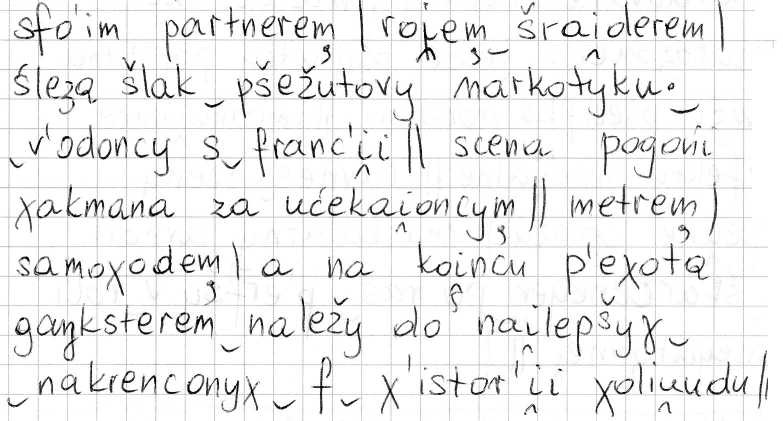 sfo'im partnerem | roi̯em‿šrai̯derem |
śleʒą šlak‿pšežutovy narkotyku‿
‿v'odoncy s‿franc'i̯i || scena pogońi
χakmana za ućekai̯oncym || metrem |
samoχodem | a na koincu p'eχotą
gaŋksterem‿należy do nai̯lepšyɣ‿
‿nakrenconyχ‿f‿χ'istor'i̯i χoliu̯udu ||